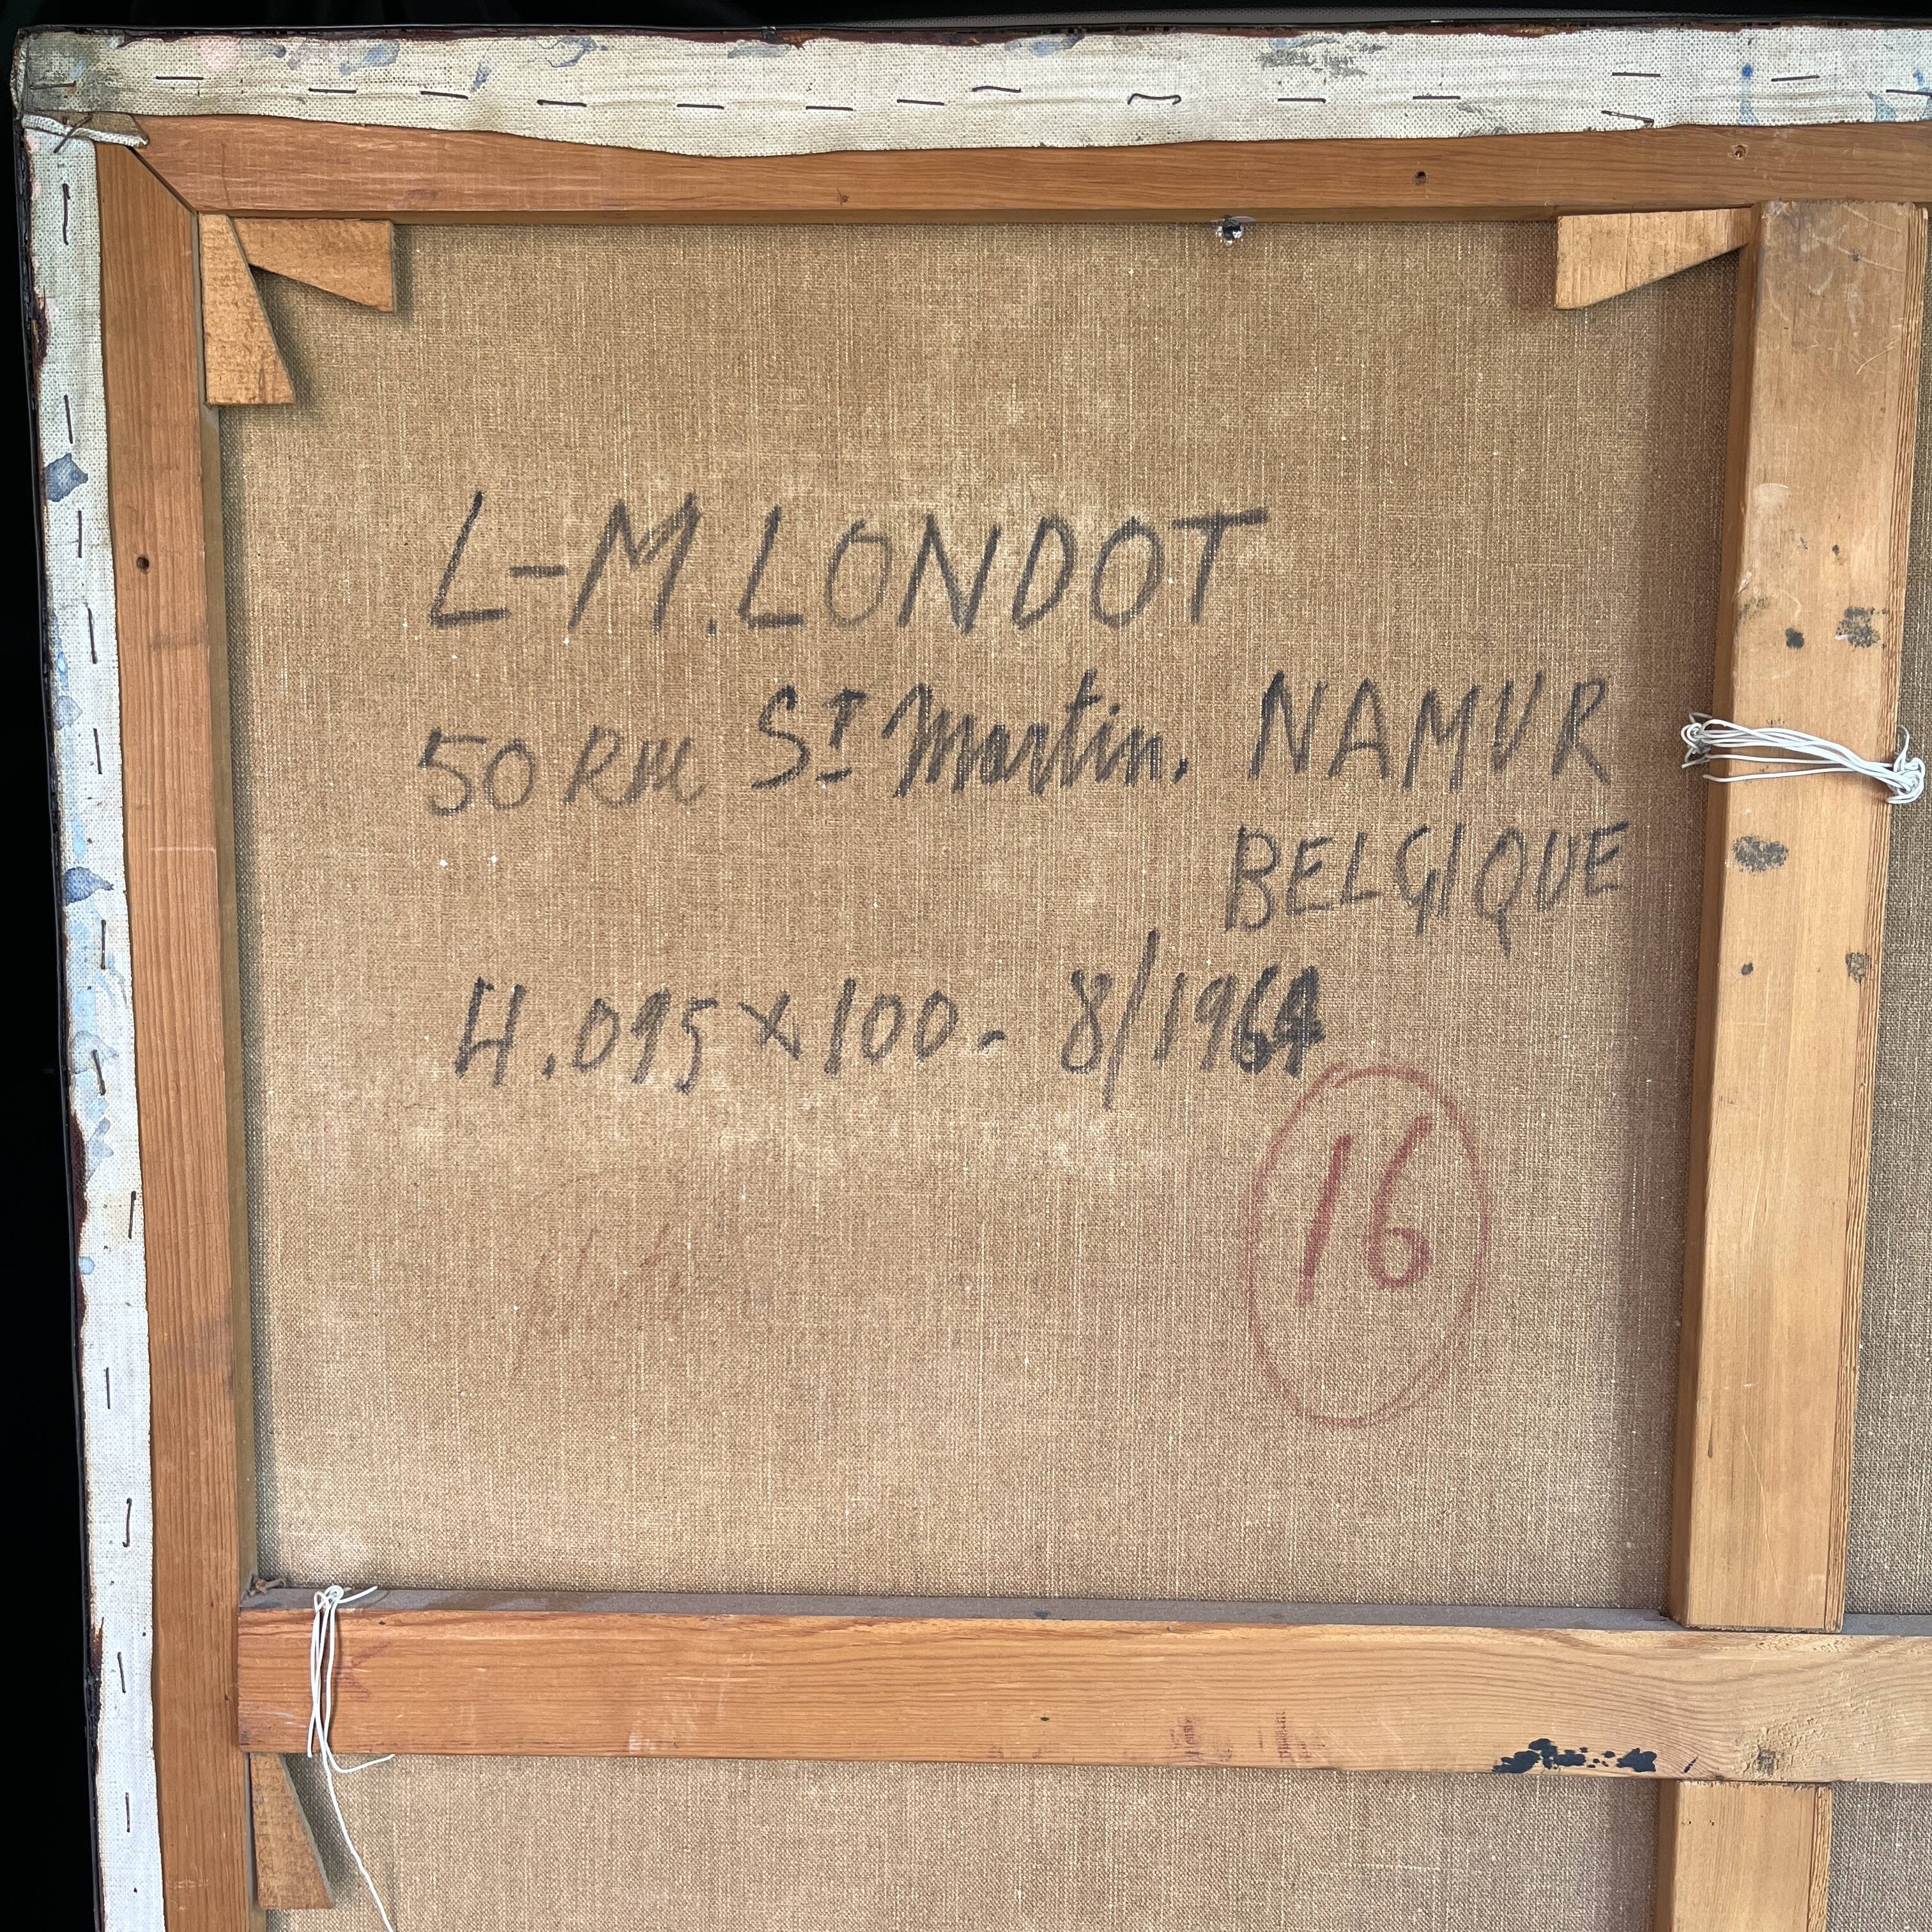 L-M. LONDOT
50 Rue St Martin. NAMUR
BELGIQUE
4.095 x 100 - 8/1964
16